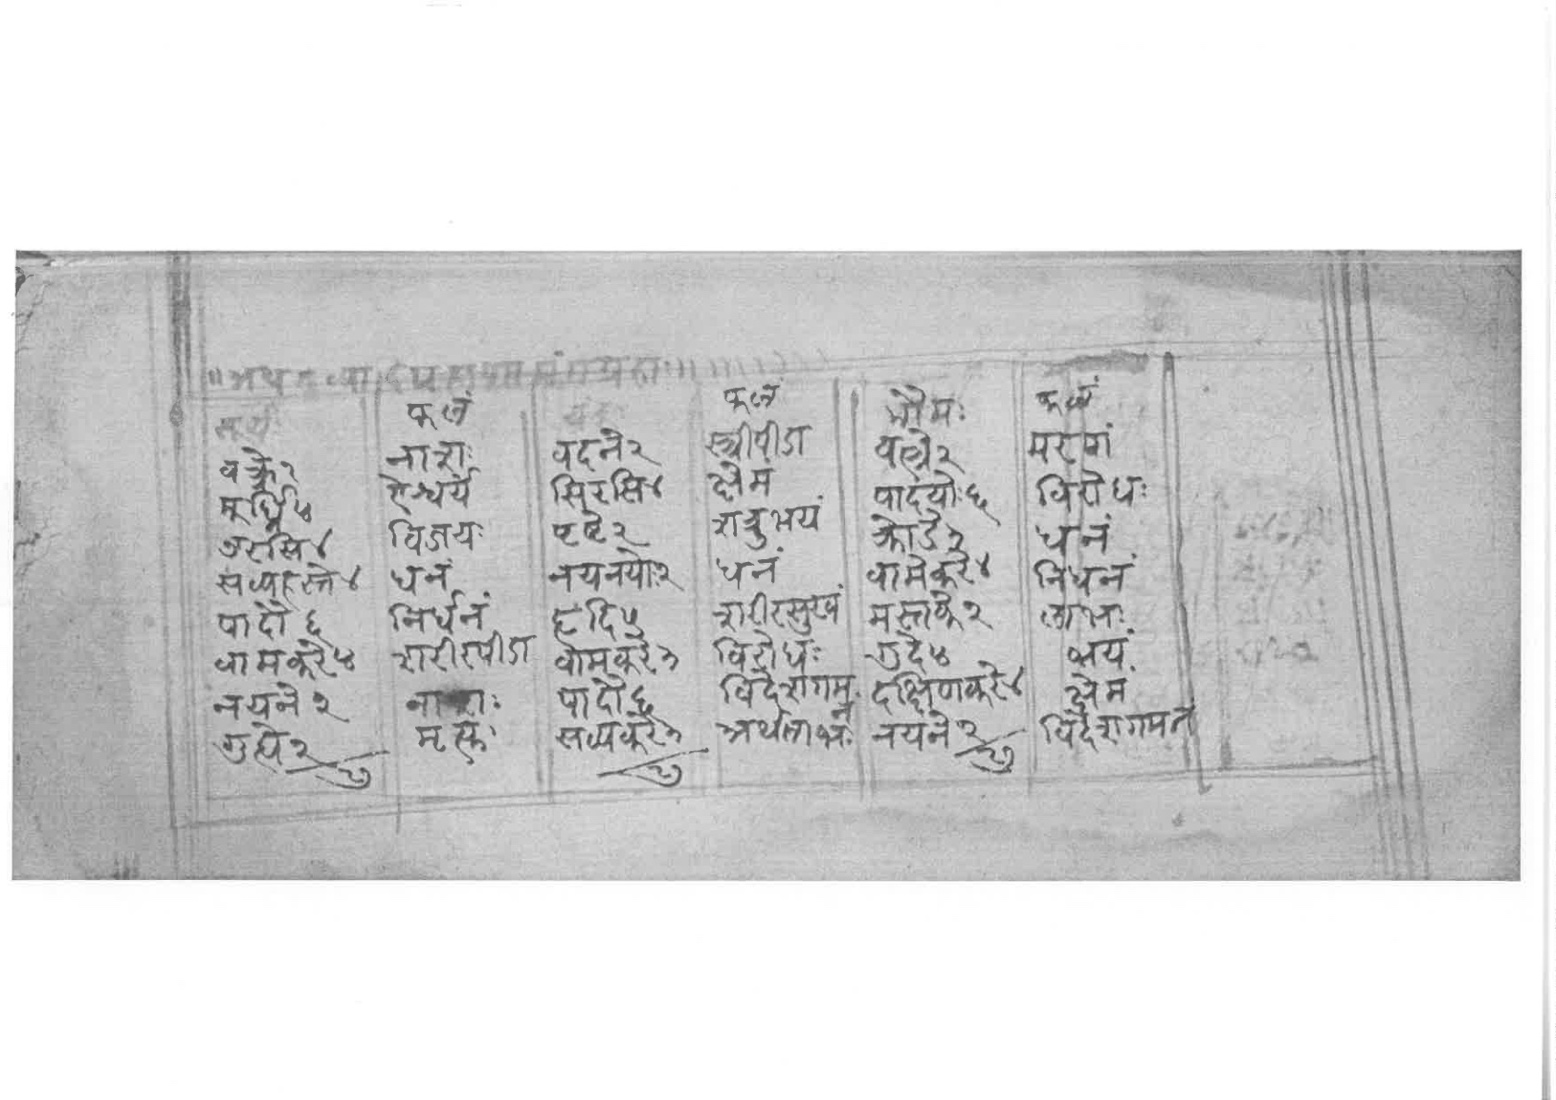 फलं फलं भौमः फलं
वक्रे२ नाशः वदने२ स्त्रीपीडा वक्त्रे२ मरणं
मूर्ध्नि५ ऐश्वर्य सिरसि४ क्षेम पादयोः६ विरोधः
उरसि४ विजयः पृष्टे२ शत्रुभयं क्रोडे२ धनं
सव्यहस्ते४ धनं नयनयोः२ धनं वामकरे४ निधनं
पादौ६ निर्धनं हृदि५ शरीरसुखं मस्तके२ लाभः
वामकरे५ शरीरपीडा वामकरे३ विरोधः गुदे५ भयं
नयने२ नाशः पादौ६ विदेशगमन दक्षिणकरे४ क्षेम
गुह्ये२ सव्यकरे३ अर्थलाभः नयने२ विदेशगमन